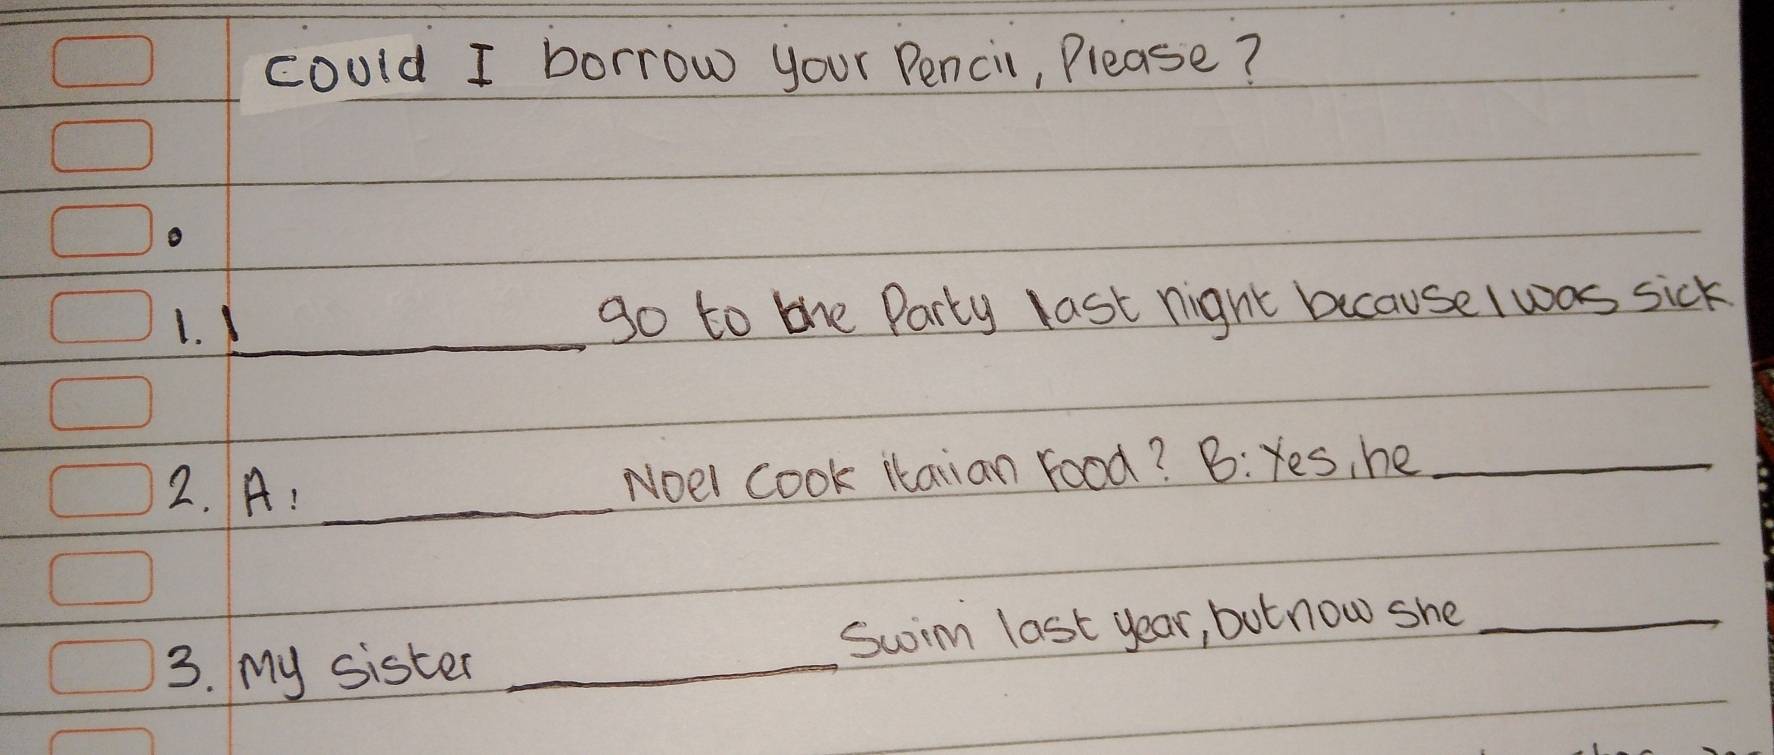 Could I borrow your Pencil, Please?
1. I __________ go to the Party last night because I was sick
2. A: __________ Noel cook italian Food? B: Yes, he __________
3. My sister __________ Swim last year, but now she __________